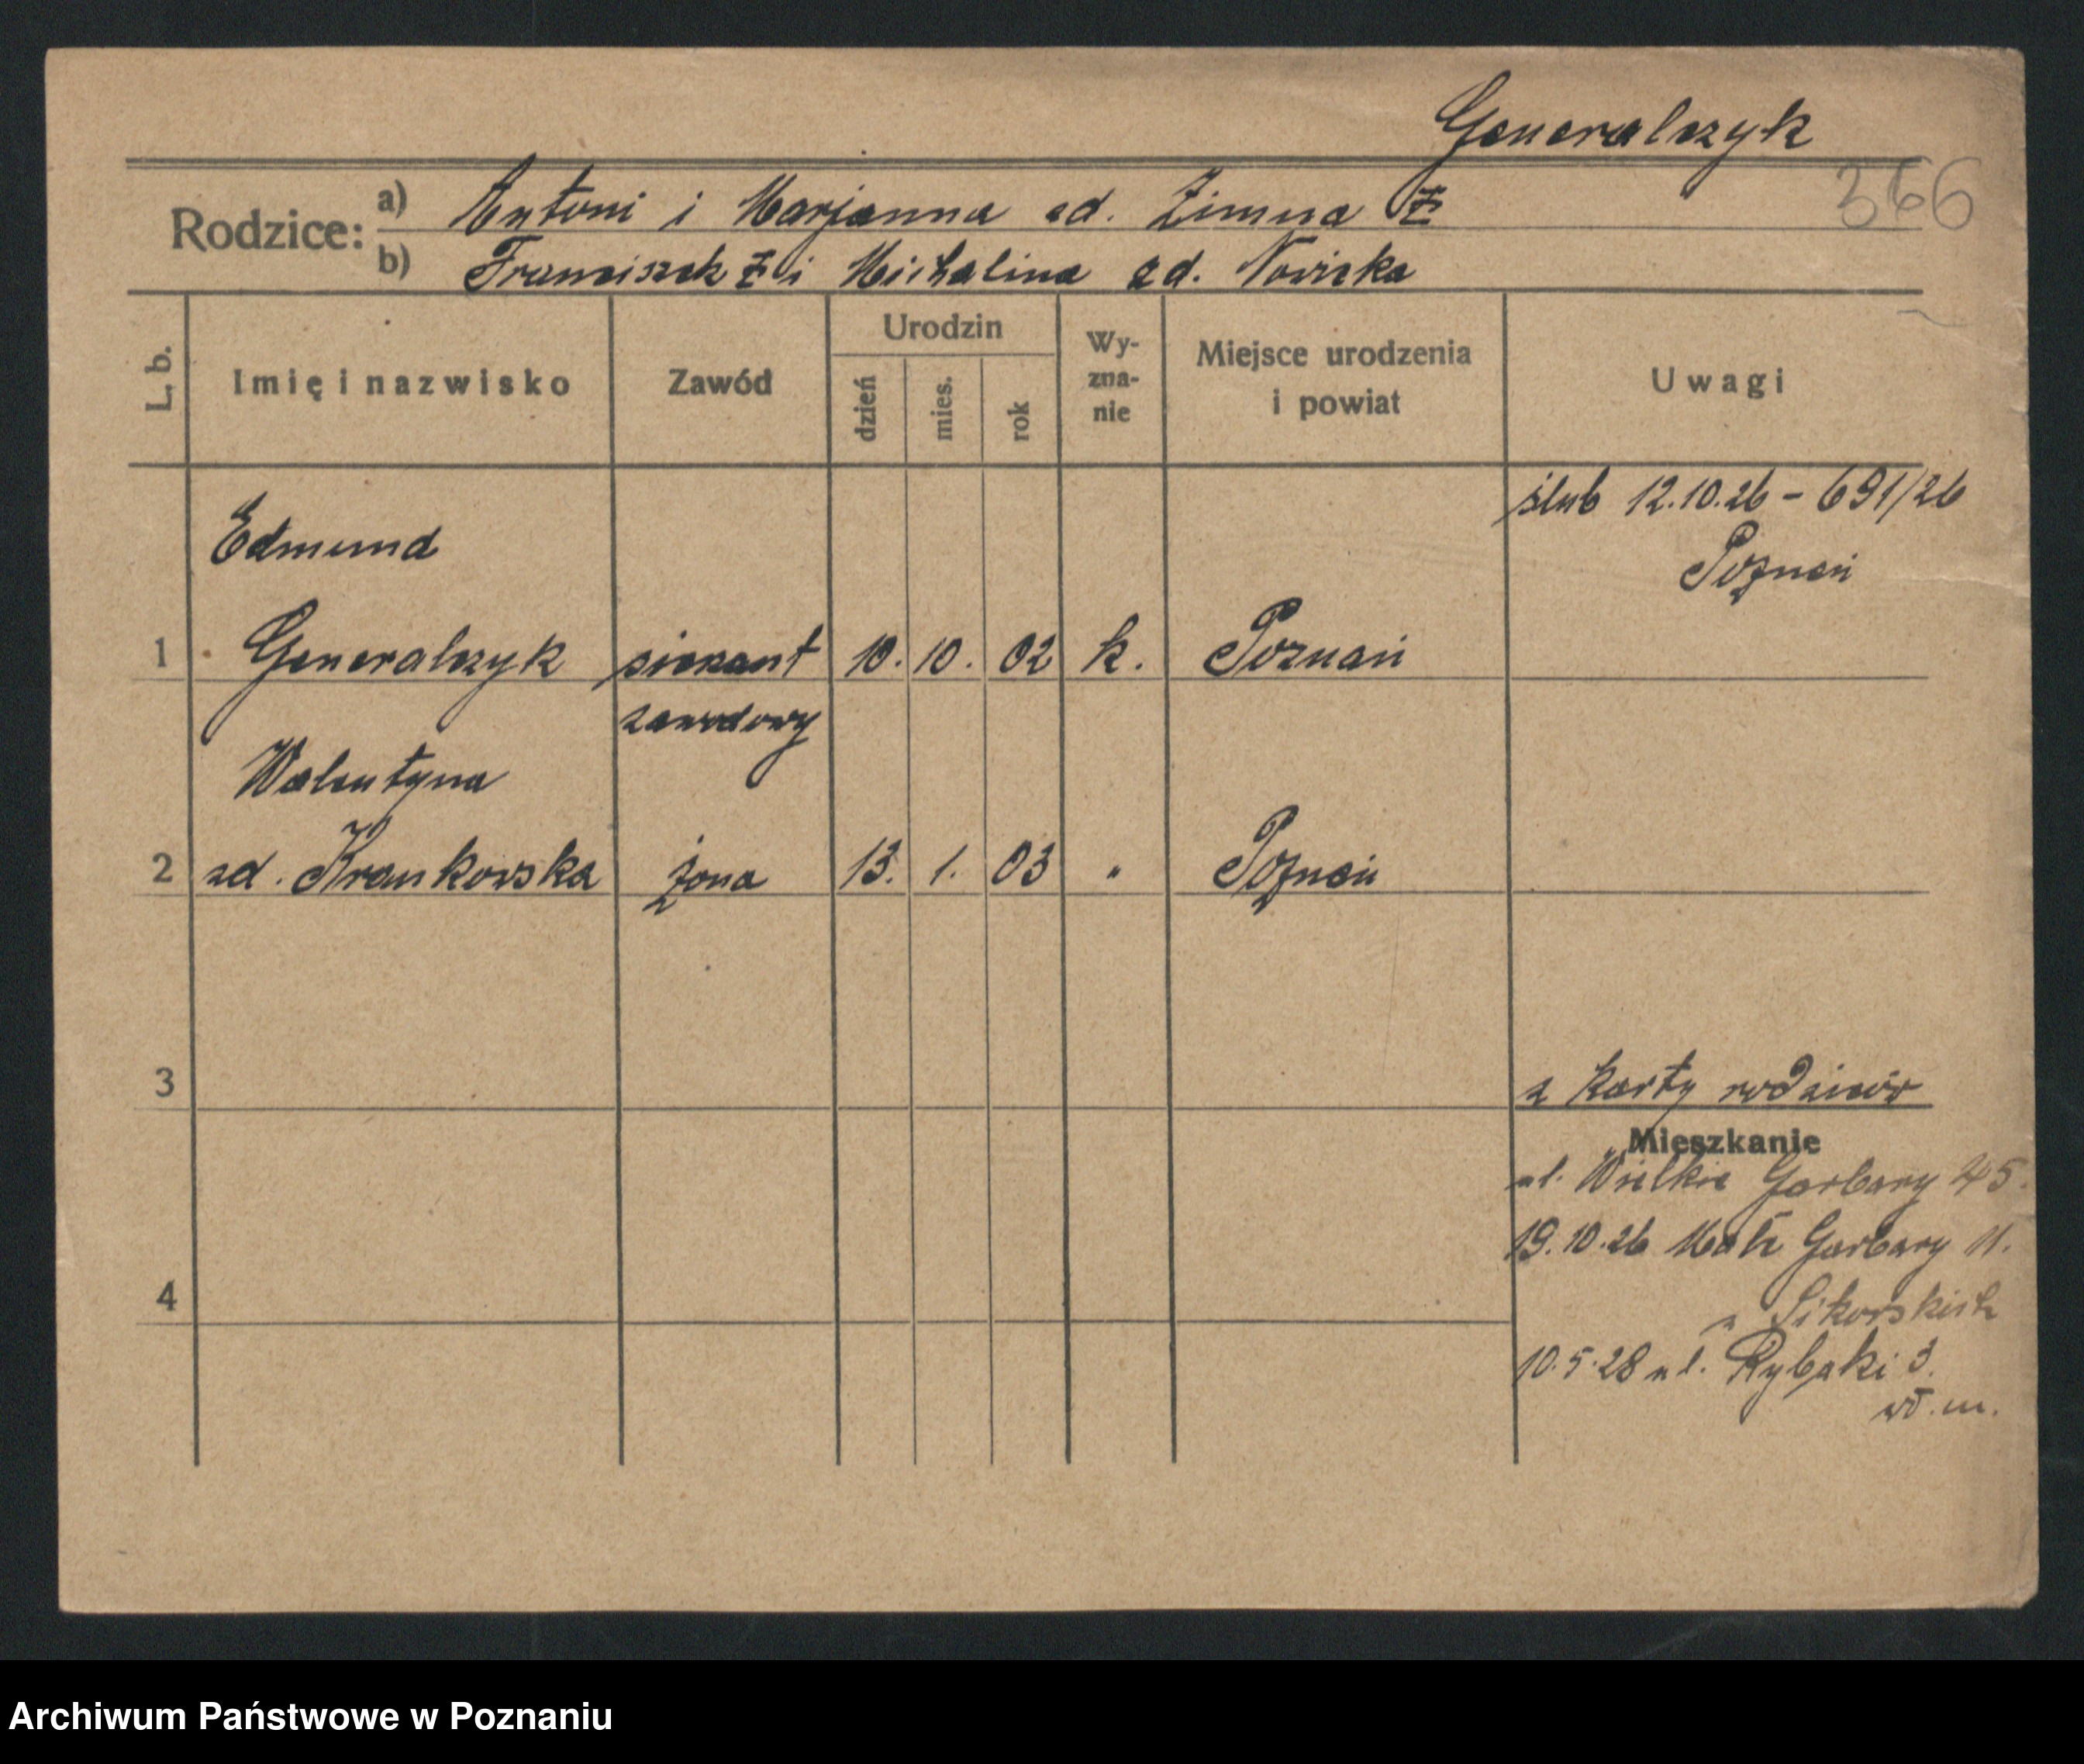 Generalczyk
366
Rodzice:
a) Antoni i Marjanna zd. Zimna
b) Franciszek i Michalina zd. Nowicka
L. b.
Imię i nazwisko
Zawód
Urodzin
dzień
mies.
rok
Wy-
zna-
nie
Miejsce urodzenia
i powiat
Uwagi
ślub 12.10.26 - 691/26
Poznań
Edmund
1 Generalczyk sierżant 10. 10. 02 k. Poznań
zawodowy
Walentyna
2 zd. Krankowska żona 13. 1. 03 " Poznań
3
z karty rodziców
Mieszkanie
ul. Wielkie Garbary 45.
19.10.26 Małe Garbary 11.
u Sikorskich
4
10.5.28 ul. Rybaki 3.
wł. m.
Archiwum Państwowe w Poznaniu